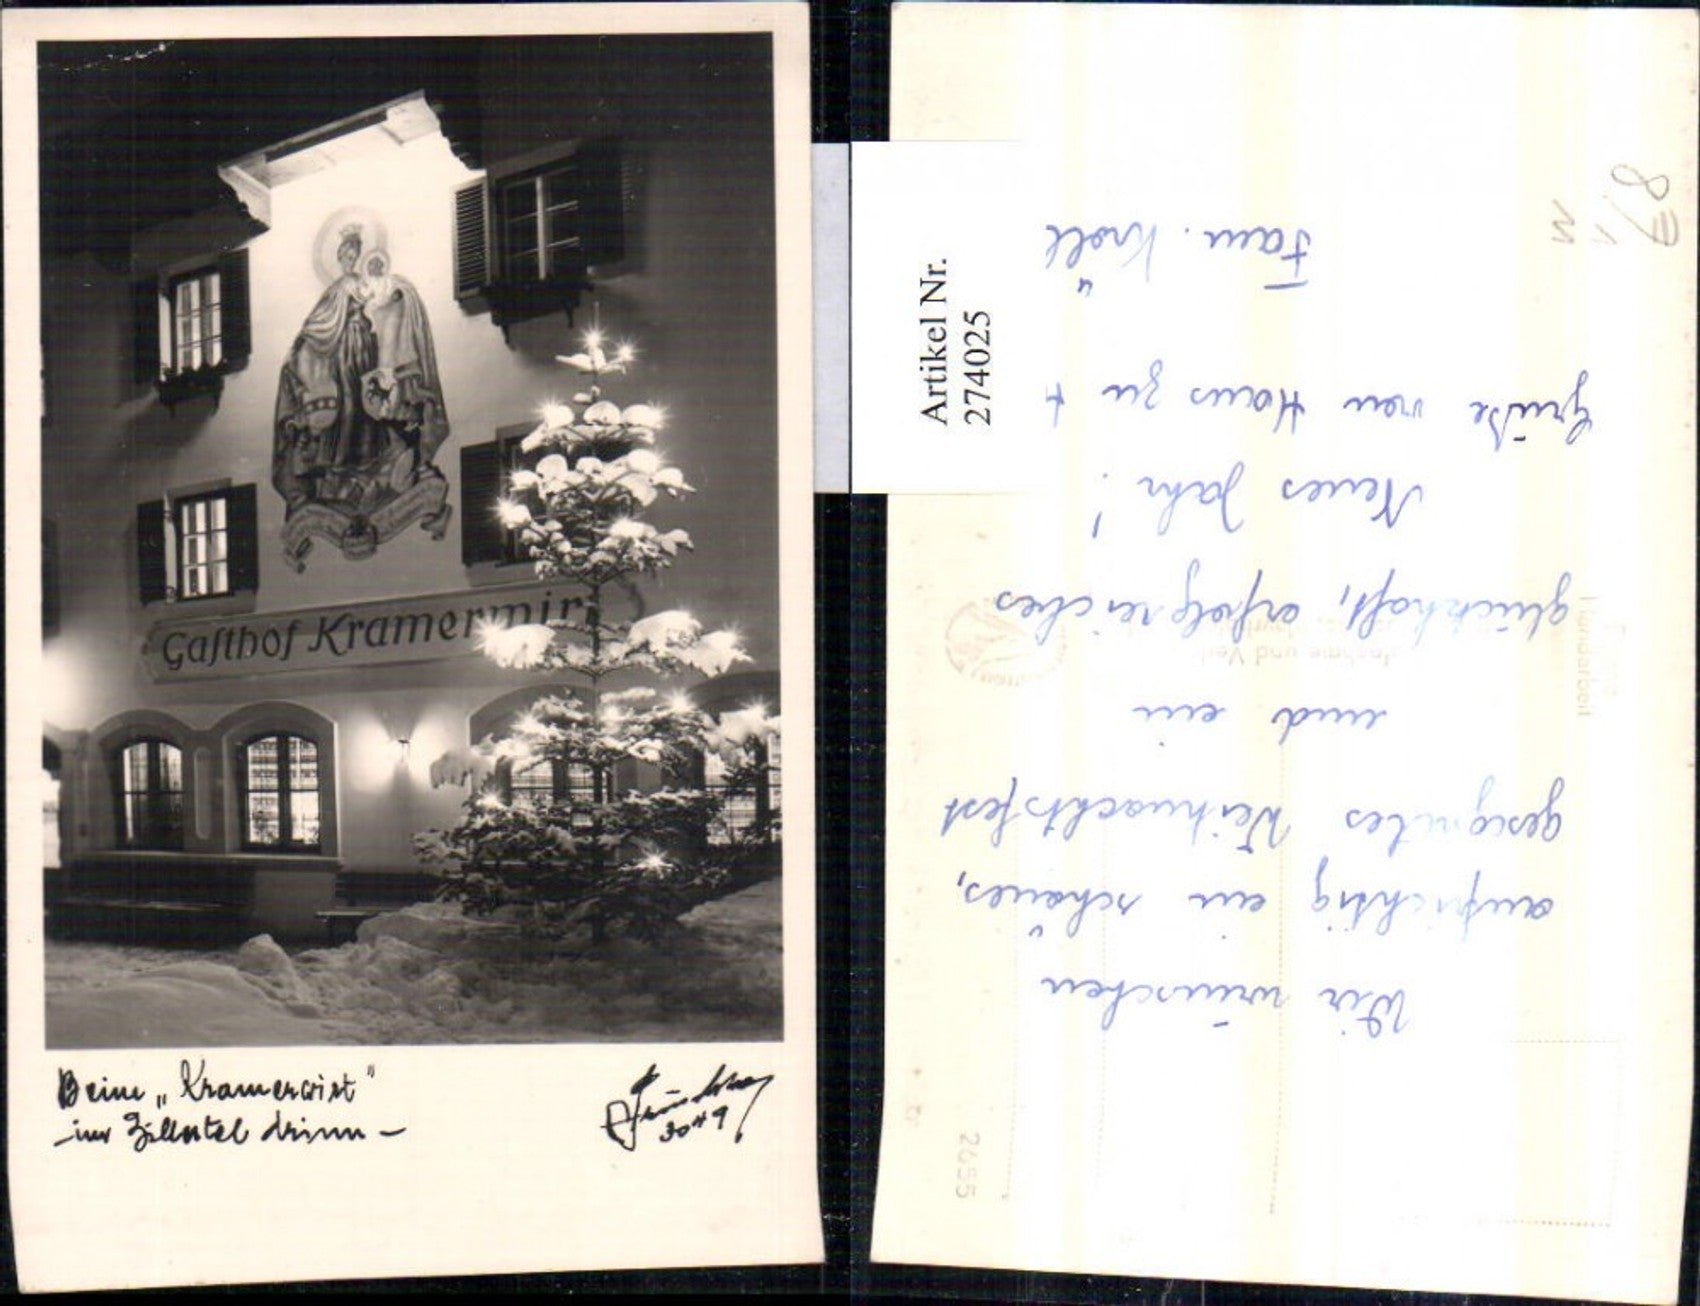 Gasthof Kramerwirt
Beim „Kramerwirt"
- im Zillertal drinn -
3049
Artikel Nr.
2744025
Wir wünschen
aufrichtig ein schönes,
gesegnetes Weihnachtsfest
und ein
glückhaft, erfolgreiches
Neues Jahr!
Grüße von Haus zu +
Fam. Kröll
Handarbeit
2655
87